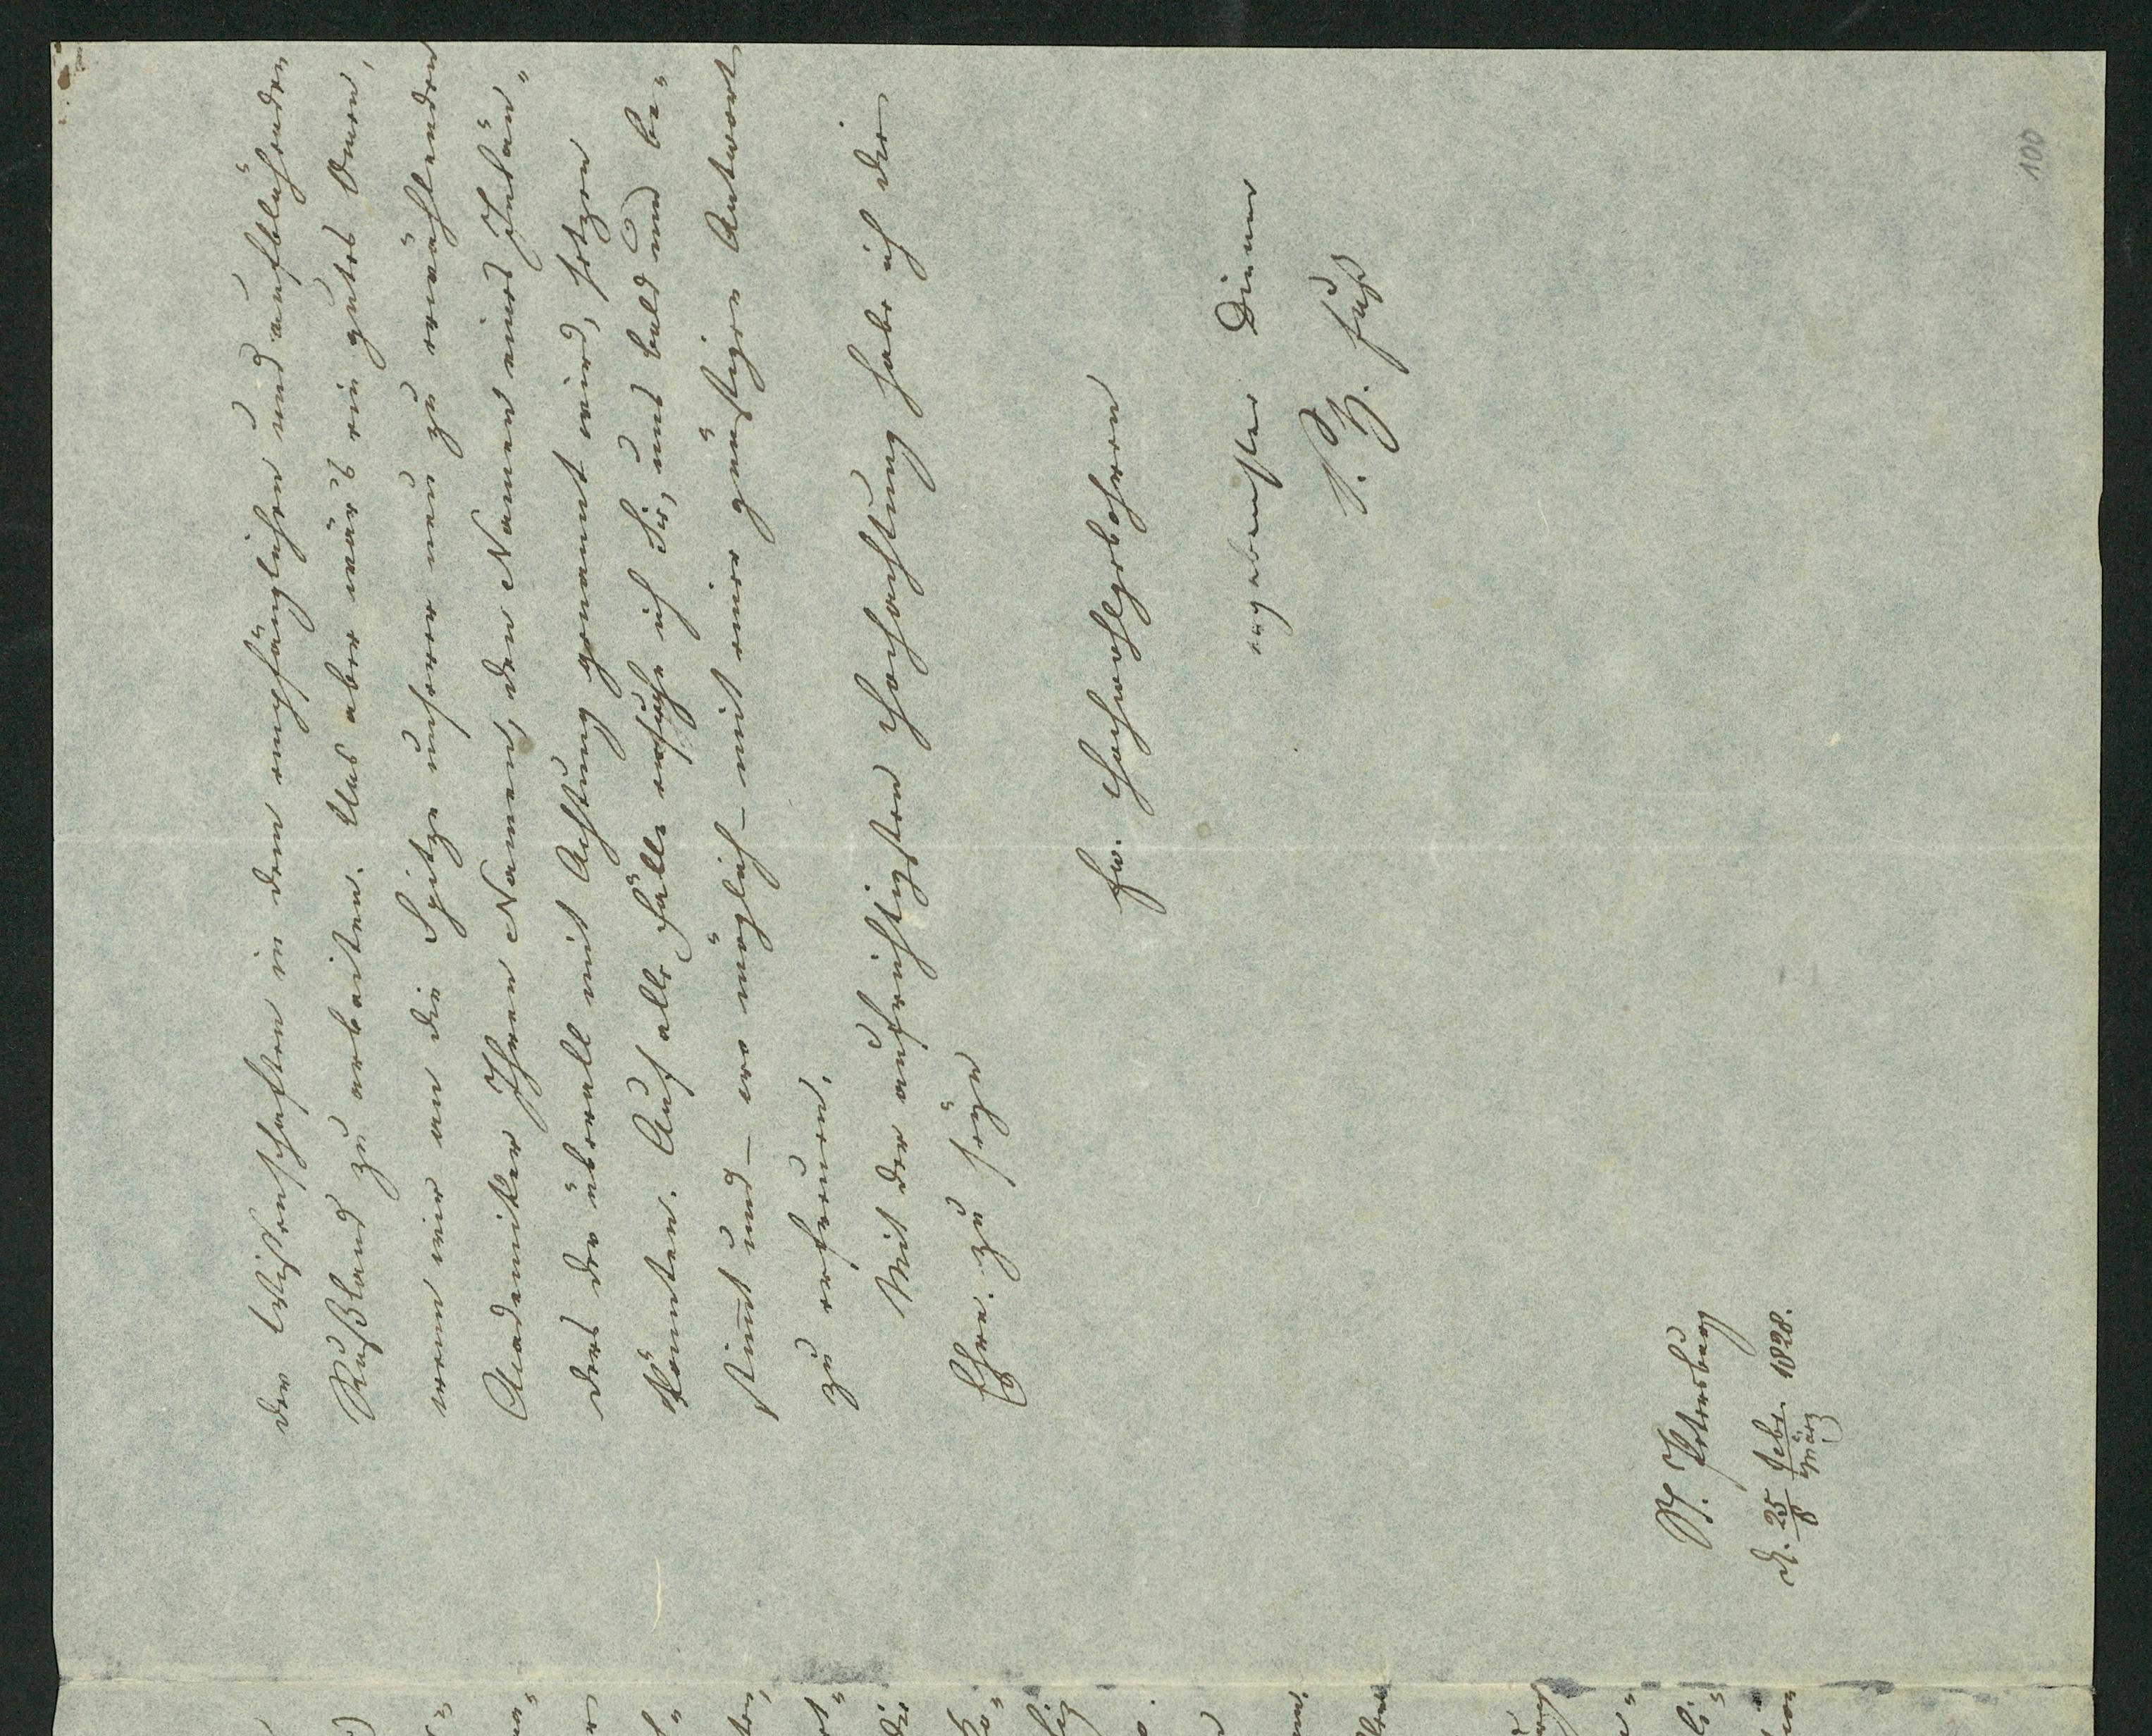 der Wißenschaften in dem empfänglichen und aufblühenden
Rußland zu arbeiten. Uns aber wär's ein gutes Omen,
wenn wir an die Spitze unserer neu zu erwählenden
Academiker Ihren Namen, den Namen eines Gelehr-
des der überall mit Achtung genannt wird, setzen
könnten. Auf alle Fälle ersuche ich Sie, uns bald und be-
stimt und – wo möglich – mit einer günstigen Antwort
zu erfreuen.
Mit der aufrichtigsten Hochachtung habe ich die
Ehre zu seyn
Ew. Hochwohlgebohren
ergebenster Diener
P. H. Fuß
St. Petersburg
d. 25/8 Febr./März 1828.
100